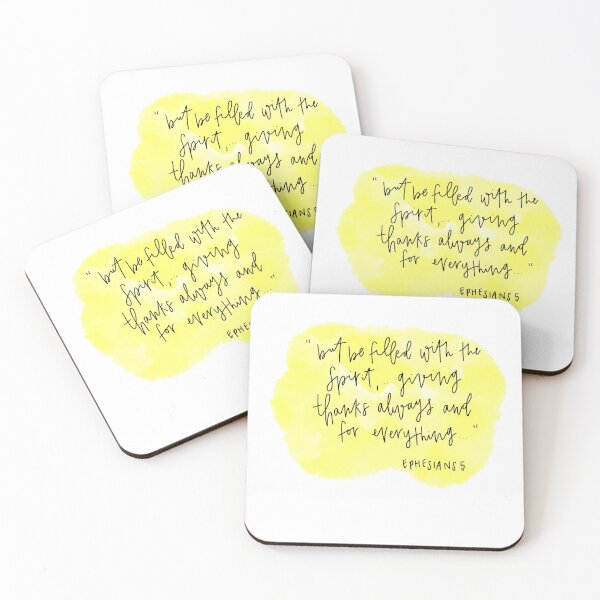 "but be filled with the
Spirit,... giving
thanks always and
thing...
SIANS 5
"but be filled with the
Spirit,... giving
thanks always and
for everything..."
EPHESIANS 5
"but be filled with the
Spirit,... giving
thanks always and
for everything..."
EPHESIA
"but be filled with the
Spirit,... giving
thanks always and
for everything..."
EPHESIANS 5